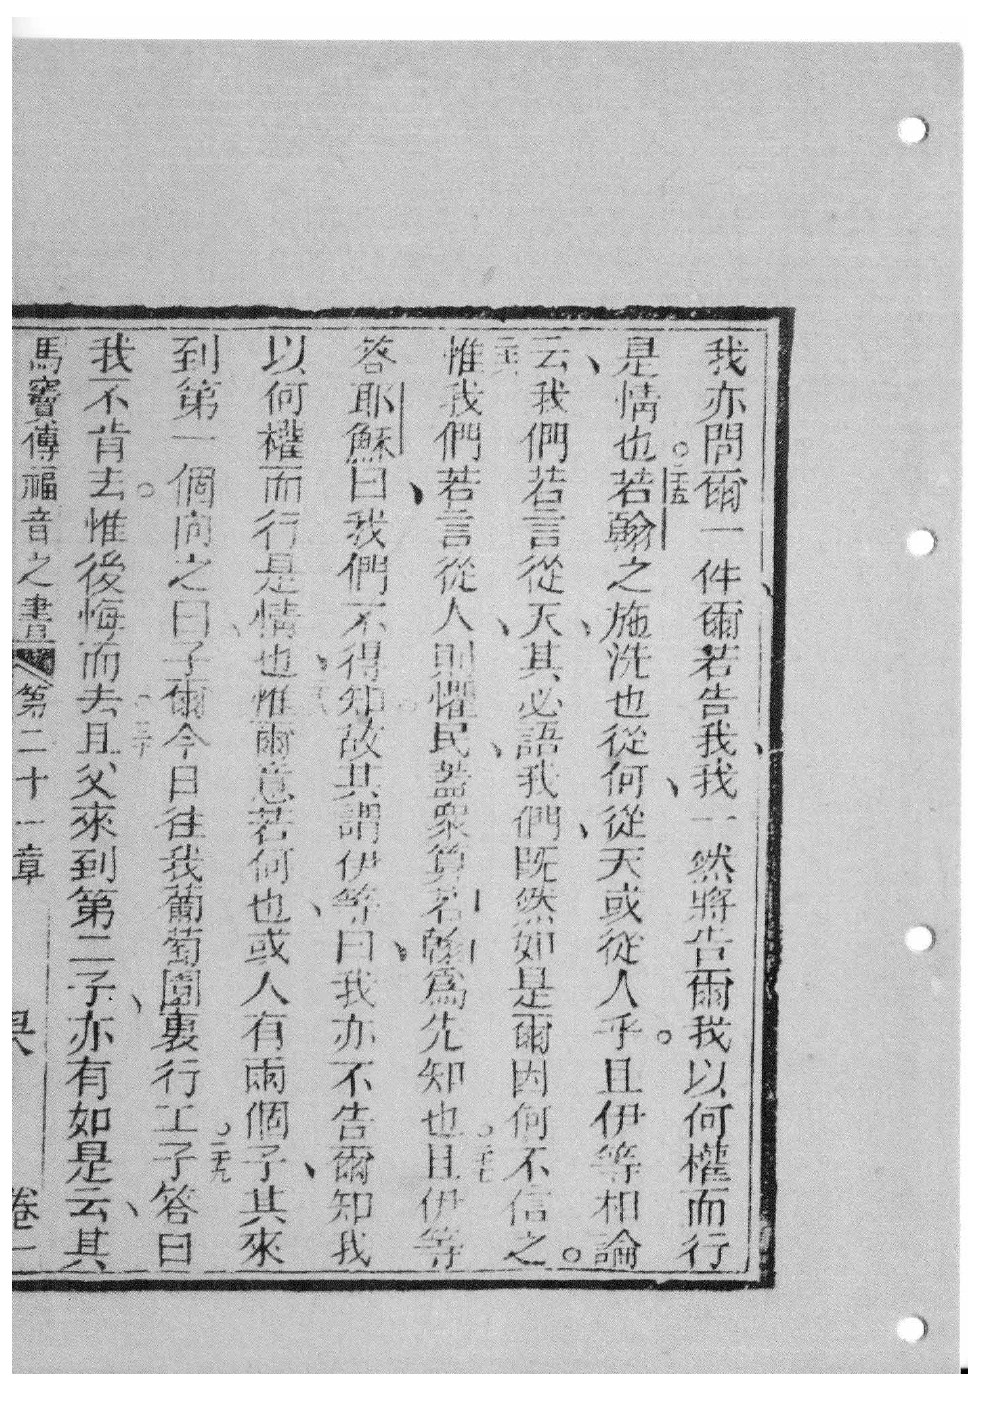 我亦問爾一件、爾若告我、我一然將告爾我以何權而行
是情也。二十五若翰之施洗也從何、從天或從人乎。且伊等相論
云、我們若言從天、其必語我們、既然如是爾因何不信之。
二十六惟我們若言從人、則懼民、蓋眾算若翰為先知也。二十七且伊等
答耶穌曰、我們不得知。故其謂伊等曰、我亦不告爾知我
以何權而行是情也、二十八惟爾意若何也、或人有兩個子、其來
到第一個向之曰、子爾今日往我葡萄園裏行工。二十九子答曰
我不肯去。惟後悔而去。三十且父來到第二子、亦有如是云、其
馬竇傳福音之書 第二十一章 卷一